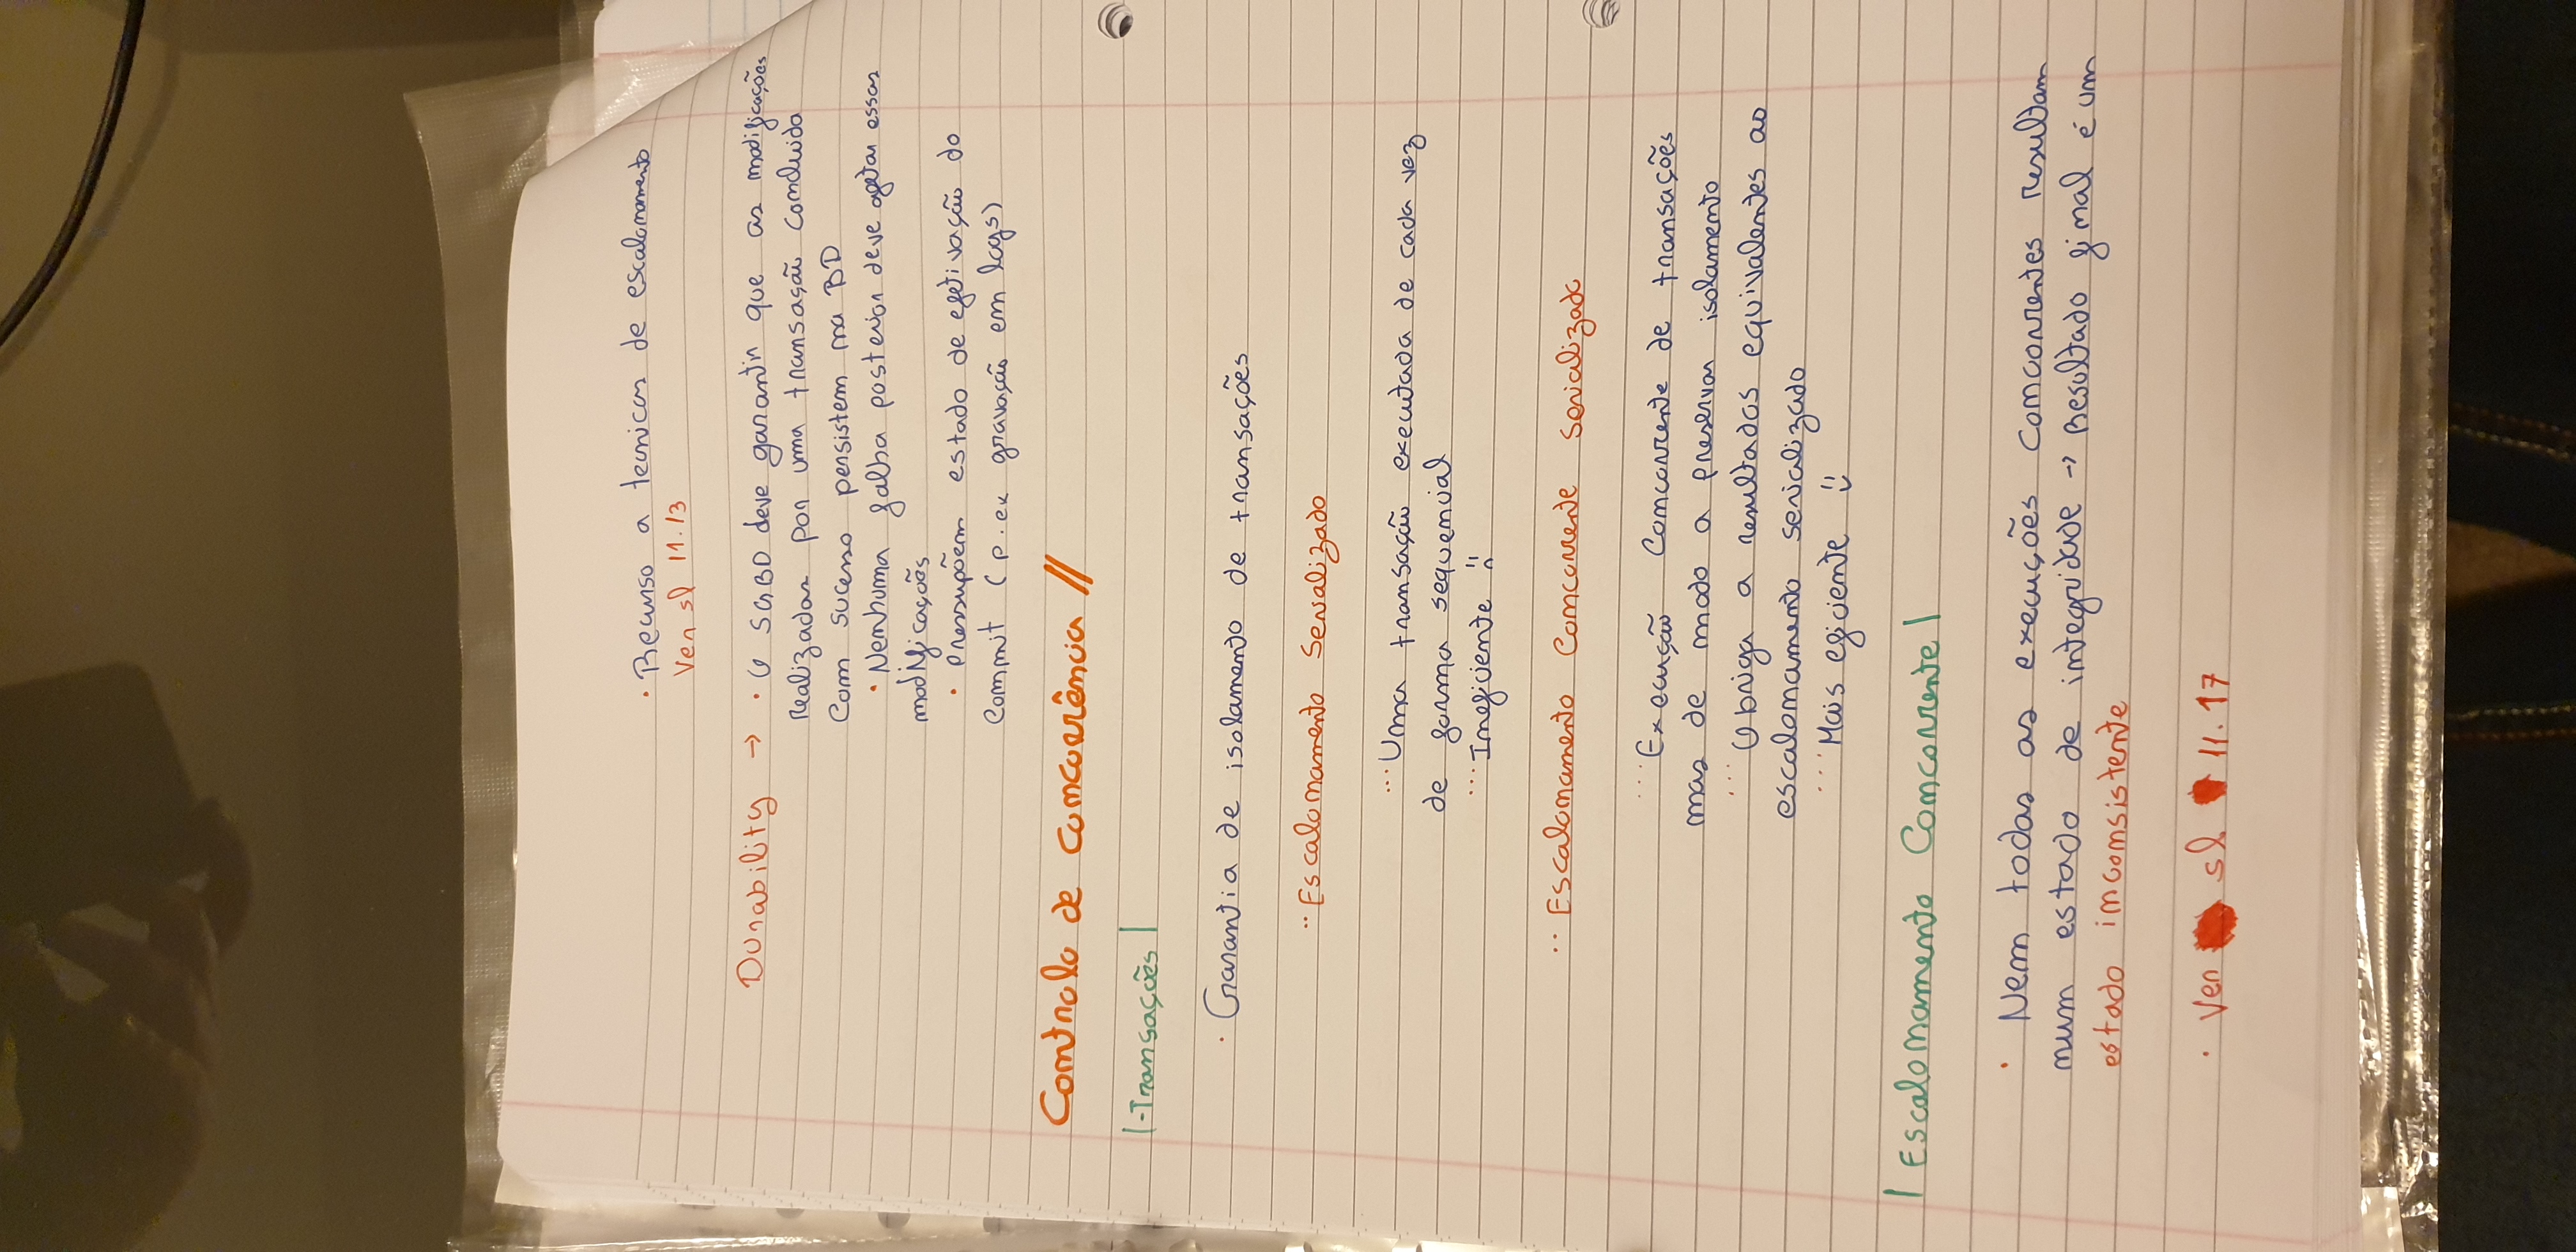 · Recurso a tecnicas de escalonamento
Ver sl 11.13
Durability → · O SGBD deve garantir que as modificações
realizadas por uma transação concluida
com sucesso persistem na BD
· Nenhuma falha posterior deve afetar essas
modificações
· Pressupõem estado de efetivação do
commit (p.ex gravação em logs)
Controlo de concorrência //
|-Transações|
· Garantia de isolamento de transações
·· Escalonamento Serializado
··· Uma transação executada de cada vez
de forma sequencial
··· Ineficiente :(
·· Escalonamento Concorrente serializado
··· Execução concorrente de transações
mas de modo a preservar isolamento
··· Obriga a resultados equivalentes ao
escalonamento serializado
··· Mais eficiente :)
| Escalonamento Concorrente |
· Nem todas as execuções concorrentes resultam
num estado de integridade → Resultado final é um
estado inconsistente
· Ver sl 11.17